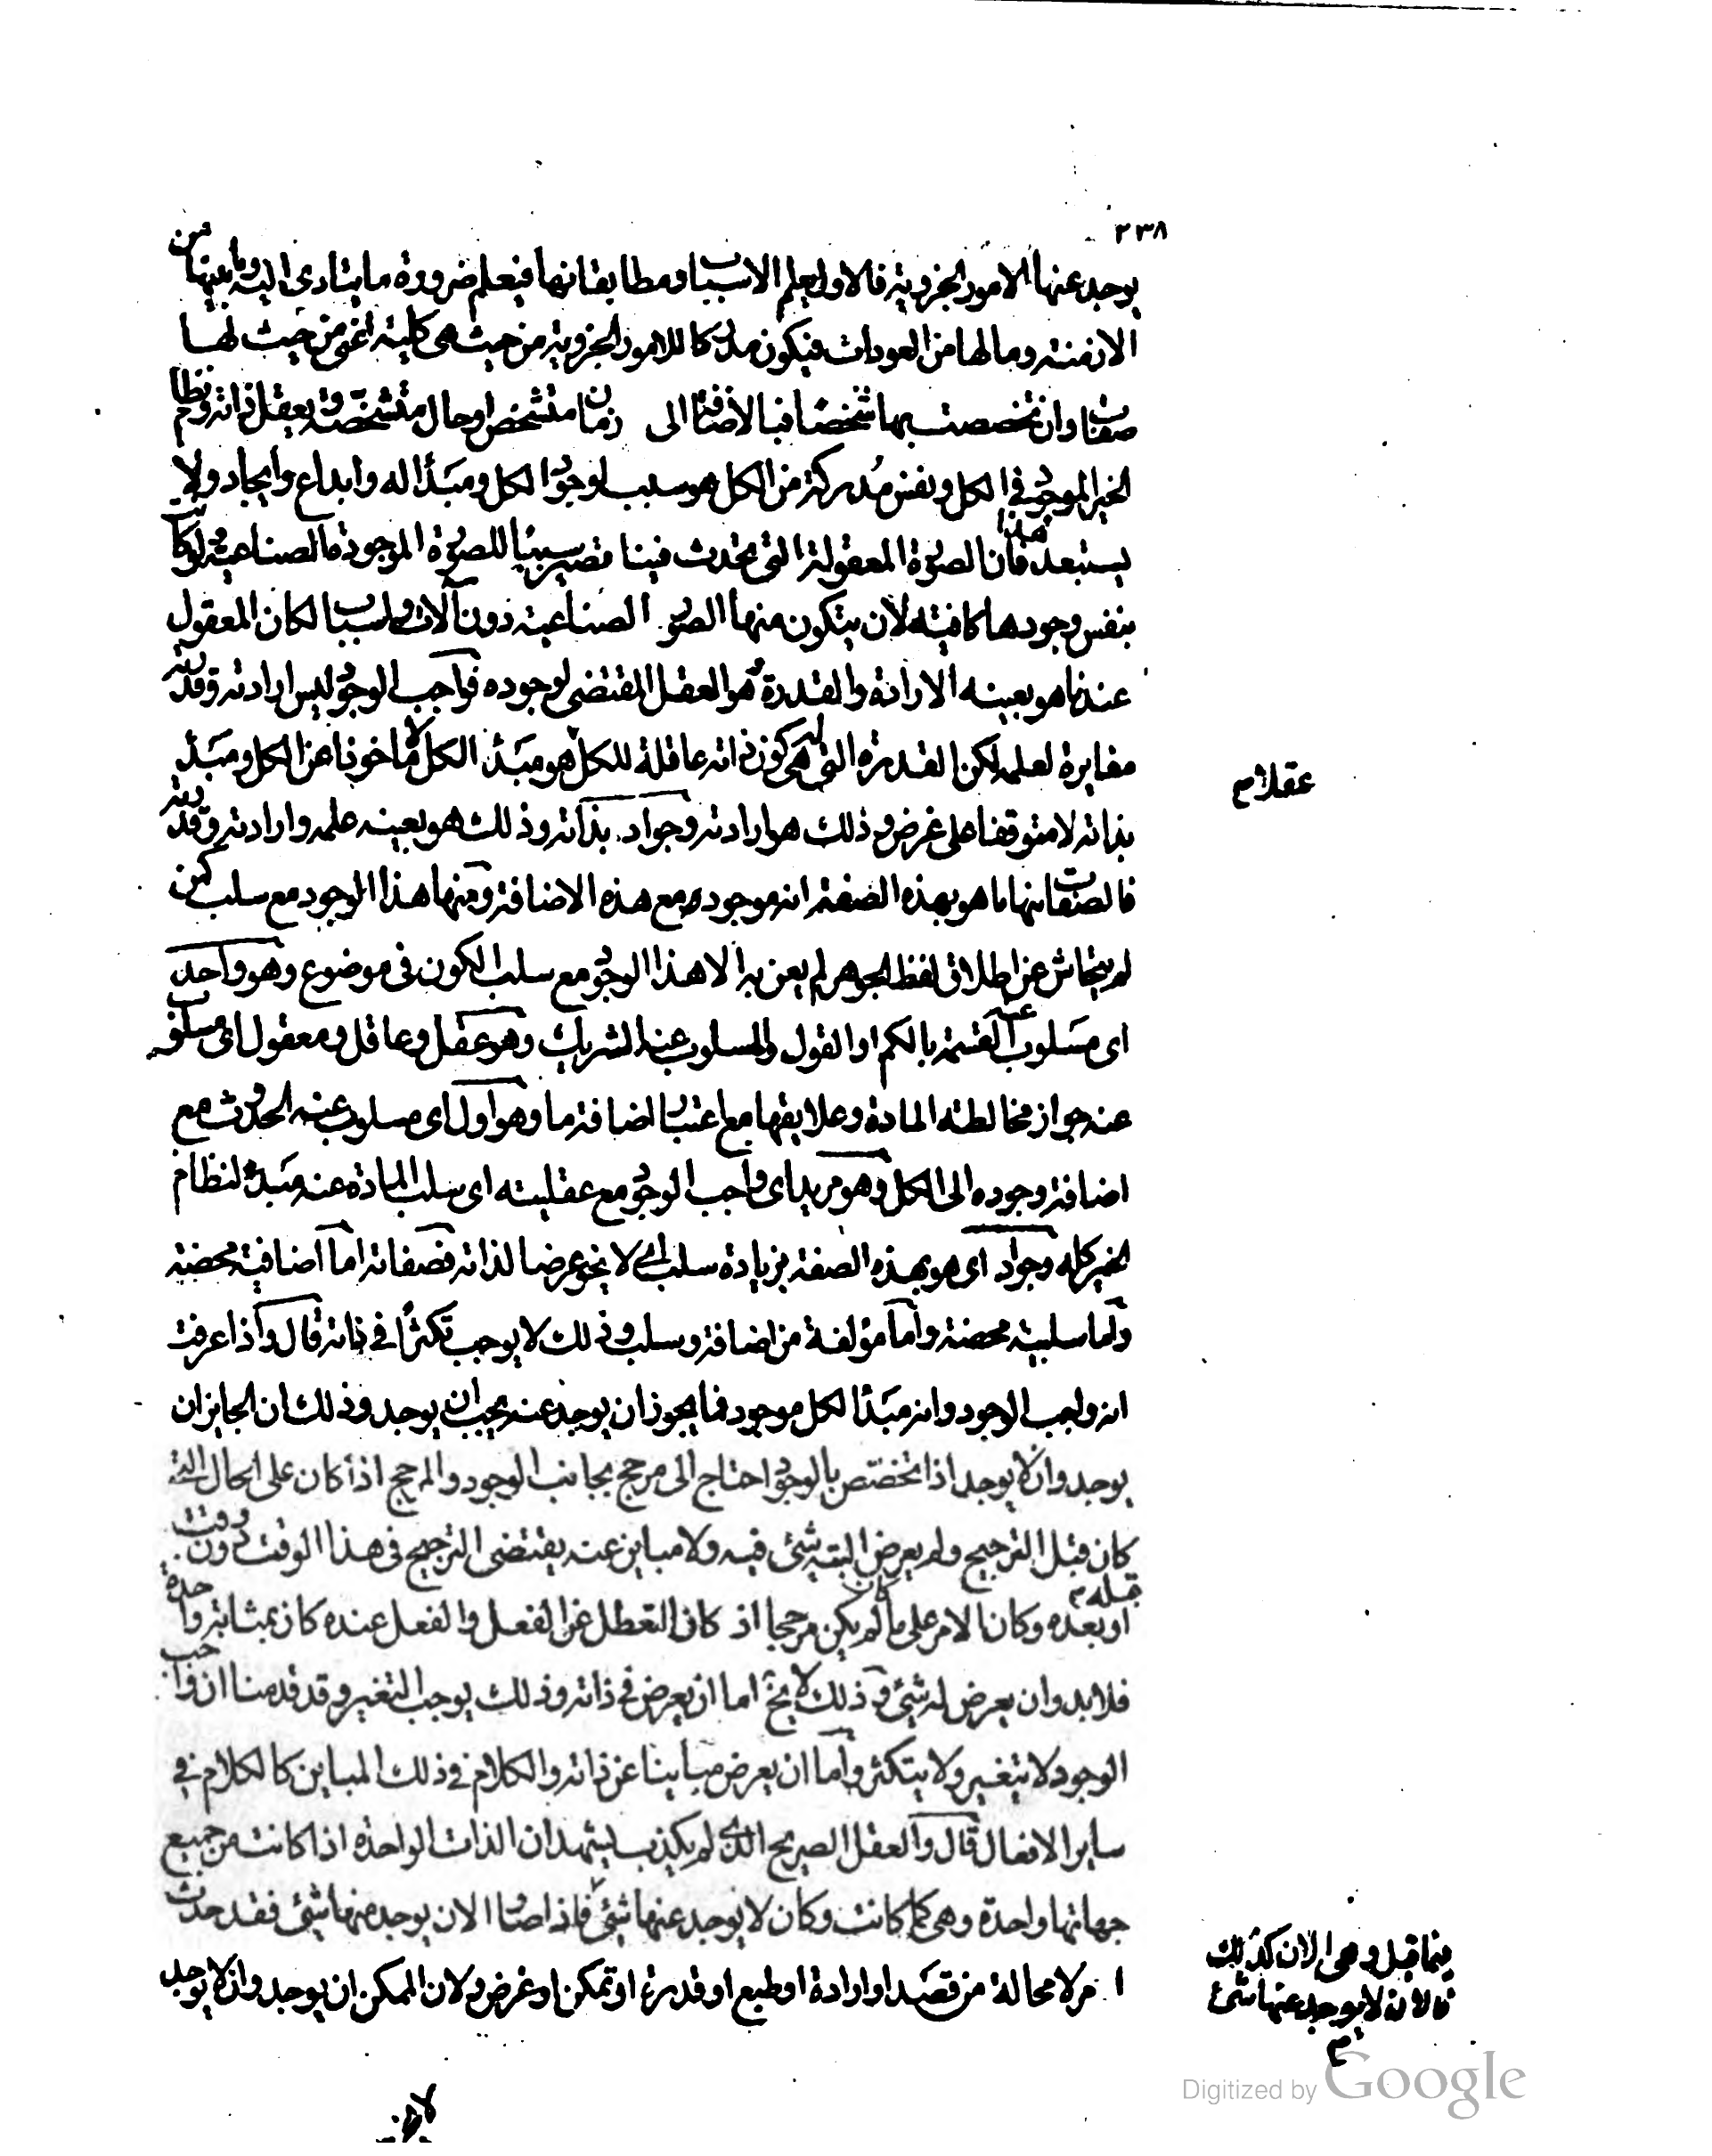 ٢٣٨
يوجد عنها الامور الجزوية فالاول يعلم الاسباب ومطابقاتها فيعلم ضرورة ما يتادى اليه وما بينها من
الازمنة وما لها من العودات فيكون مدركا للامور الجزوية من حيث هى كلية اعنى من حيث لها
صفات وان تخصصت بها شخصا فبالاضافة الى زمان متشخص او حال متشخصة يعقل ذاته ونظام
الخير الموجود فى الكل ونفس مدركة من الكل هو سبب لوجود الكل ومبدأ له وابداع وايجاد ولا
يستبعد هذا فان الصورة المعقولة التى تحدث فينا تصير سببا للصورة الموجودة الصناعية ولو كانت
بنفس وجودها كافية لان يتكون منها الصور الصناعية دون آلات واسباب لكان المعقول
عندنا هو بعينه الارادة والقدرة وهو العقل المقتضى لوجوده فواجب الوجود ليس ارادته وقدرته
مغايرة لعلمه لكن القدرة التى له هى كون ذاته عاقلة للكل هو مبدأ الكل لا ماخوذا عن الكل ومبدأ
بذاته لا متوقفا على غرض وذلك هو ارادته وجواد بذاته وذلك هو بعينه علمه وارادته وقدرته
فالصفات منها ما هو بهذه الصفة انه موجود مع هذه الاضافة ومنها هذا الوجود مع سلب كمن
لم يتحاش عن اطلاق لفظ الجوهر لم يعن به الا هذا الوجود مع سلب الكون فى موضوع وهو واحد
اى مسلوب عنه القسمة بالكم او القول والمسلوب عنه الشريك وهو عقل وعاقل ومعقول اى مسلوب
عنه جواز مخالطته المادة وعلايقها مع اعتبار اضافة ما وهو اول اى مسلوب عنه الحدوث مع
اضافة وجوده الى الكل وهو مريد اى واجب الوجود مع عقليته اى سلب المادة عنه مبدأ لنظام
الخير كله وجواد اى هو بهذه الصفة بزيادة سلب اى لا ينحو غرضا لذاته فصفاته اما اضافية محضة
واما سلبية محضة واما مؤلفة من اضافة وسلب وذلك لا يوجب تكثرا فى ذاته قال واذا عرفت
انه واجب الوجود وانه مبدأ لكل موجود فما يجوز ان يوجد عنه يجب ان يوجد وذلك ان الجايز ان
يوجد وان لا يوجد اذا تخصص بالوجود احتاج الى مرجح بجانب الوجود والمرجح اذا كان على الحال التى
كان قبل الترجيح ولم يعرض البتة شئ فيه ولا مباين عنه يقتضى الترجيح فى هذا الوقت دون وقت
قبله او بعده وكان الامر على ما كان لم يكن مرجحا اذ كان التعطل عن الفعل والفعل عنده كان بمثابة واحدة
فلابد وان يعرض له شئ وذلك لا يخ اما ان يعرض فى ذاته وذلك يوجب التغير وقد قدمنا ان واجب
الوجود لا يتغير ولا يتكثر واما ان يعرض مباينا عن ذاته والكلام فى ذلك المباين كالكلام فى
ساير الافعال قال والعقل الصريح الذى لم يكذب يشهد ان الذات الواحدة اذا كانت من جميع
جهاتها واحدة وهى كما كانت وكان لا يوجد عنها شئ فاذا صار الان يوجد منها شئ فقد حدث
امر لا محالة من قصد او ارادة او طبع او قدرة او تمكن او غرض ولان الممكن ان يوجد وان لا يوجد
عقلا م
فيما قبل وهى الان كذلك
فالان لا يوجد عنها شئ
م
Digitized by Google